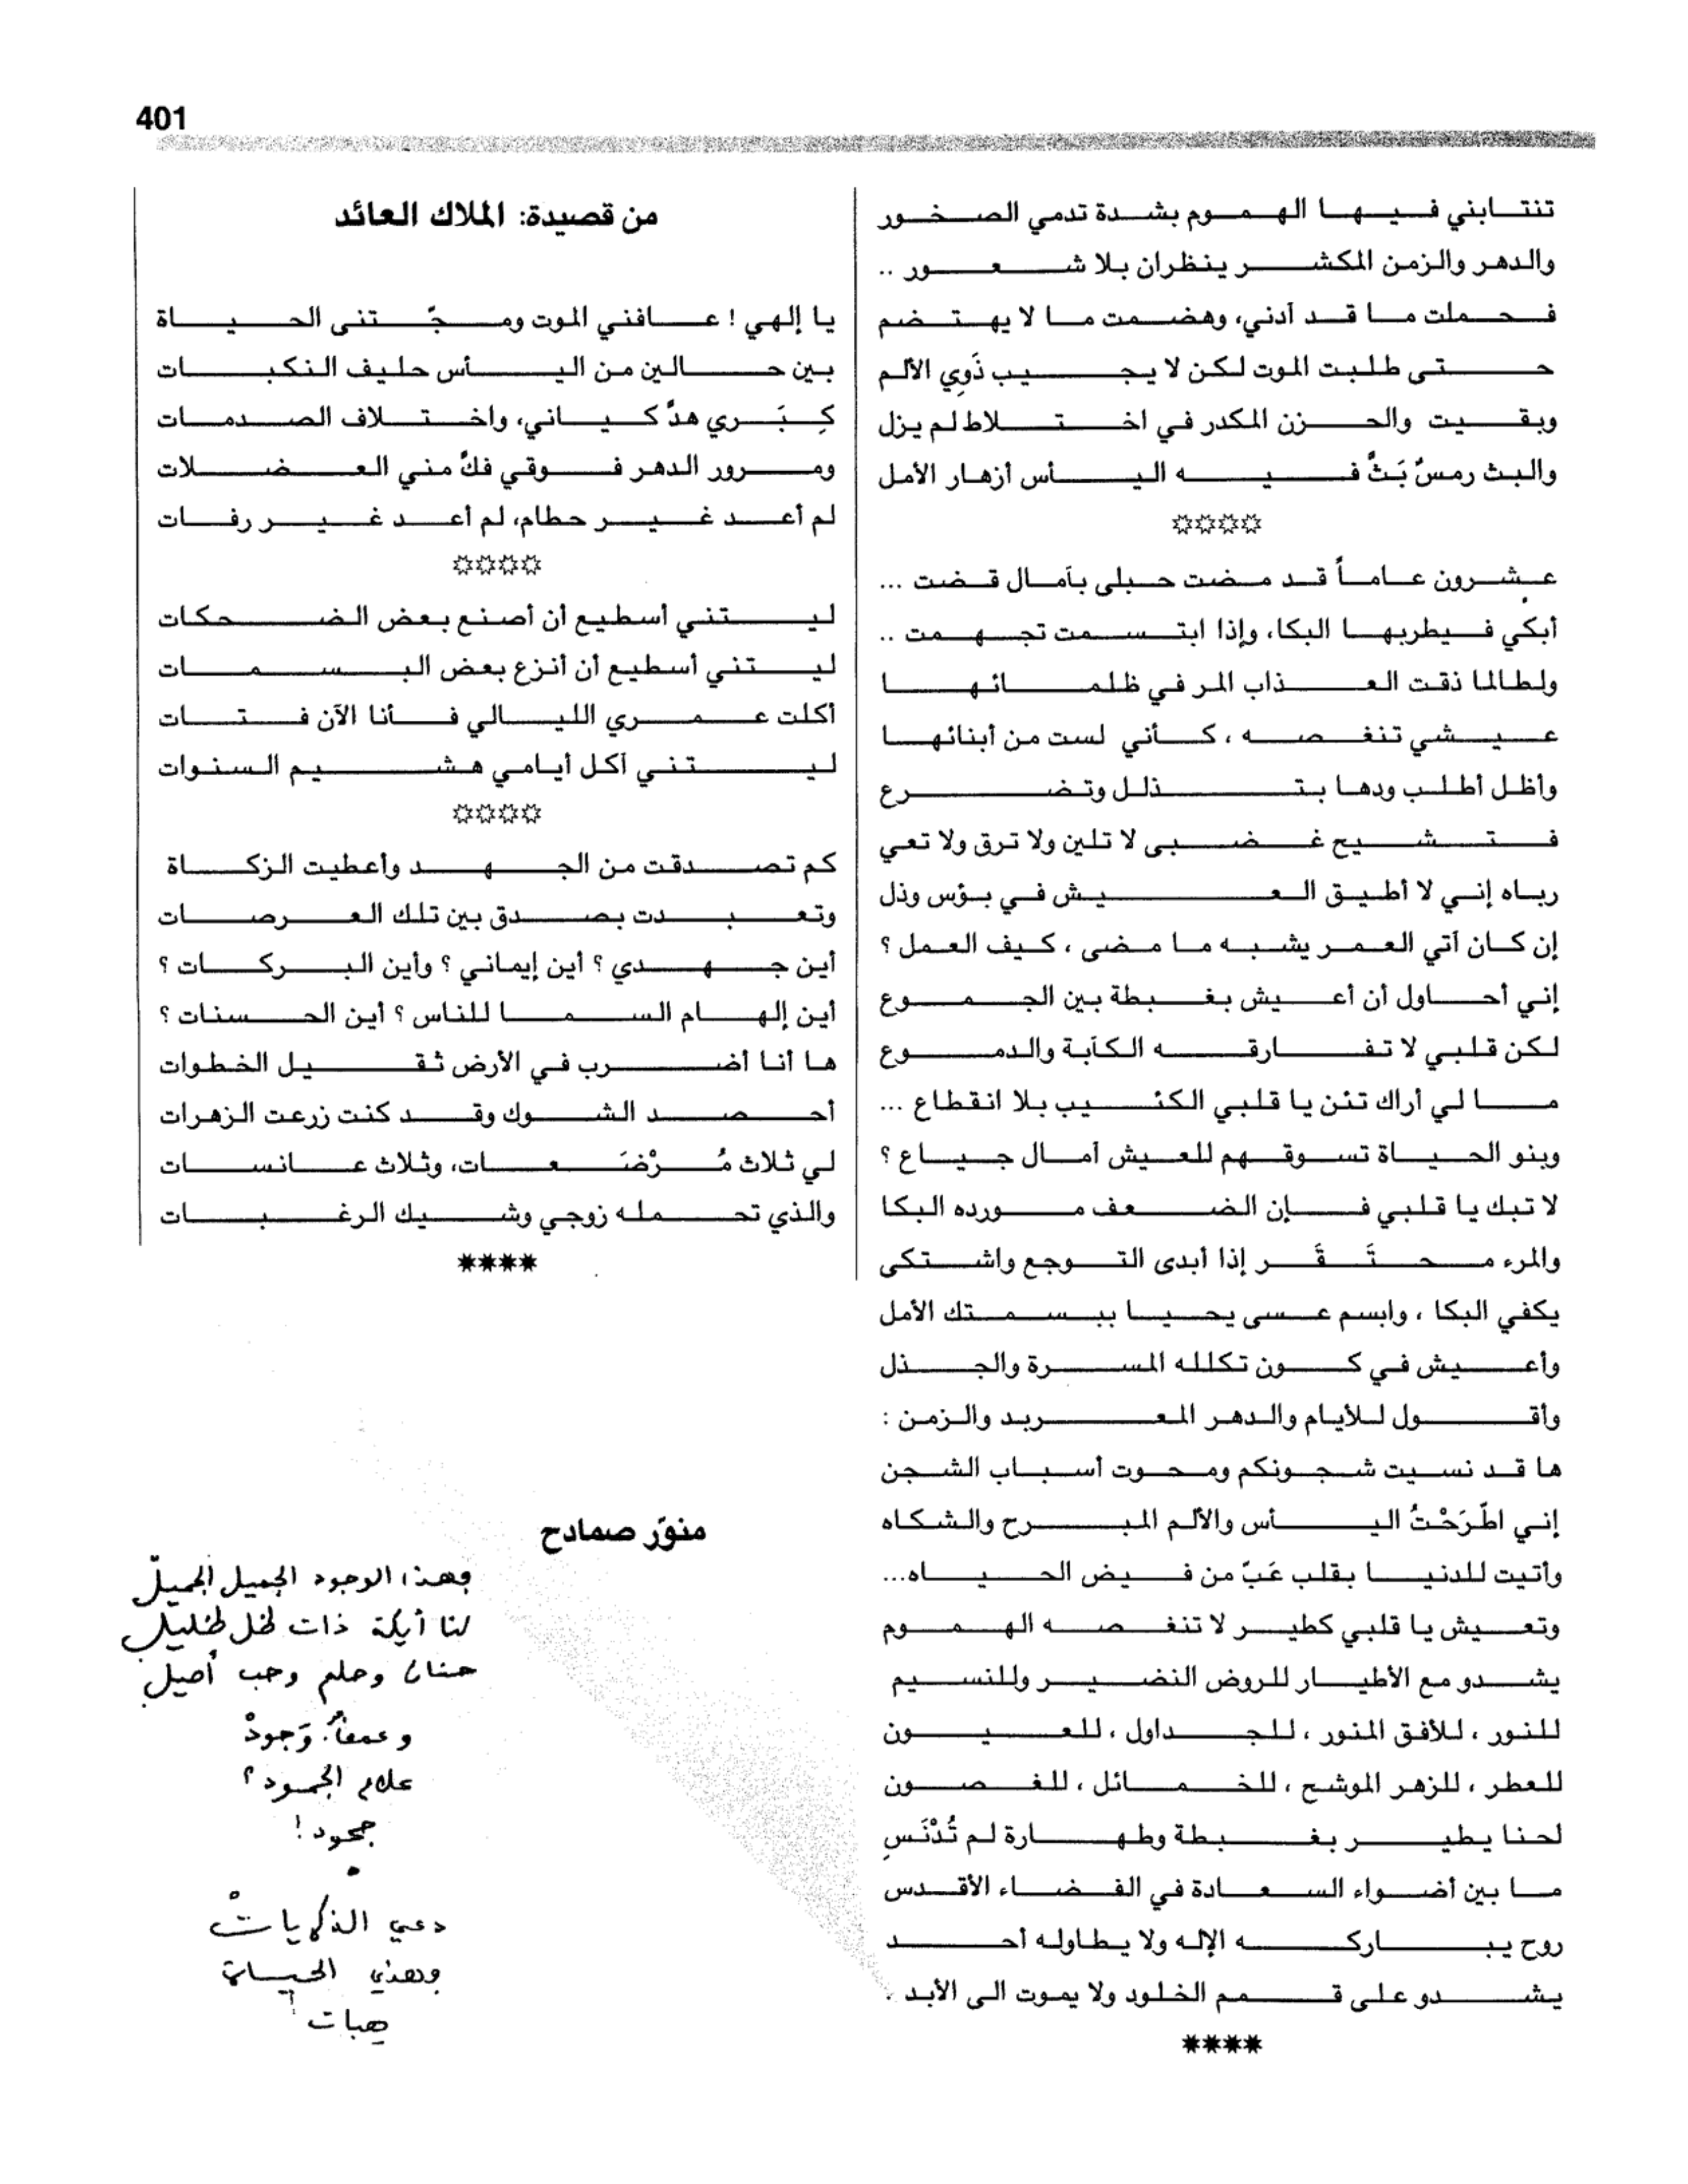 401
تنتابني فيها الهموم بشدة تدمي الصخور
والدهر والزمن المكشر ينظران بلا شعور ..
فحملت ما قد آدني، وهضمت ما لا يهتضم
حتى طلبت الموت لكن لا يجيب ذَوِي الألم
وبقيت والحزن المكدر في اختلاط لم يزل
والبث رمسٌ بَثَّ فيه اليأس أزهار الأمل
☼☼☼☼
عشرون عاماً قد مضت حبلى بآمال قضت ...
أبكي فيطربها البكا، وإذا ابتسمت تجهمت ..
ولطالما ذقت العذاب المر في ظلمائها
عيشي تنغصه ، كأني لست من أبنائها
وأظل أطلب ودها بتذلل وتضرع
فتشيح غضبى لا تلين ولا ترق ولا تعي
رباه إني لا أطيق العيش في بؤس وذل
إن كان آتي العمر يشبه ما مضى ، كيف العمل ؟
إني أحاول أن أعيش بغبطة بين الجموع
لكن قلبي لا تفارقه الكآبة والدموع
ما لي أراك تئن يا قلبي الكئيب بلا انقطاع ...
وبنو الحياة تسوقهم للعيش آمال جياع ؟
لا تبك يا قلبي فإن الضعف مورده البكا
والمرء محتَقَر إذا أبدى التوجع واشتكى
يكفي البكا ، وابسم عسى يحيا ببسمتك الأمل
وأعيش في كون تكلله المسرة والجذل
وأقول للأيام والدهر المعربد والزمن :
ها قد نسيت شجونكم ومحوت أسباب الشجن
إني اطَّرَحْتُ اليأس والألم المبرح والشكاه
وأتيت للدنيا بقلب عَبَّ من فيض الحياه...
وتعيش يا قلبي كطير لا تنغصه الهموم
يشدو مع الأطيار للروض النضير وللنسيم
للنور ، للأفق المنور ، للجداول ، للعيون
للعطر ، للزهر الموشح ، للخمائل ، للغصون
لحنا يطير بغبطة وطهارة لم تُدْنَسِ
ما بين أضواء السعادة في الفضاء الأقدس
روح يباركه الإله ولا يطاوله أحد
يشدو على قمم الخلود ولا يموت الى الأبد .
****
من قصيدة: الملاك العائد
يا إلهي ! عافني الموت ومجَّتنى الحياة
بين حالين من اليأس حليف النكبات
كِبَري هدَّ كياني، واختلاف الصدمات
ومرور الدهر فوقي فكَّ مني العضلات
لم أعد غير حطام، لم أعد غير رفات
☼☼☼☼
ليتني أسطيع أن أصنع بعض الضحكات
ليتني أسطيع أن أنزع بعض البسمات
أكلت عمري الليالي فأنا الآن فتات
ليتني آكل أيامي هشيم السنوات
☼☼☼☼
كم تصدقت من الجهد وأعطيت الزكاة
وتعبدت بصدق بين تلك العرصات
أين جهدي ؟ أين إيماني ؟ وأين البركات ؟
أين إلهام السما للناس ؟ أين الحسنات ؟
ها أنا أضرب في الأرض ثقيل الخطوات
أحصد الشوك وقد كنت زرعت الزهرات
لي ثلاث مُرْضَعات، وثلاث عانسات
والذي تحمله زوجي وشيك الرغبات
****
منوّر صمادح
وهذا الوجود الجميل الجميلْ
لنا أيكة ذات ظل ظليل
حنان وحلم وحب أصيل
وجودْ
علام الجمود ؟
جحود !
•
دعي الذكرياتْ
وهذي الحياة
هبات !